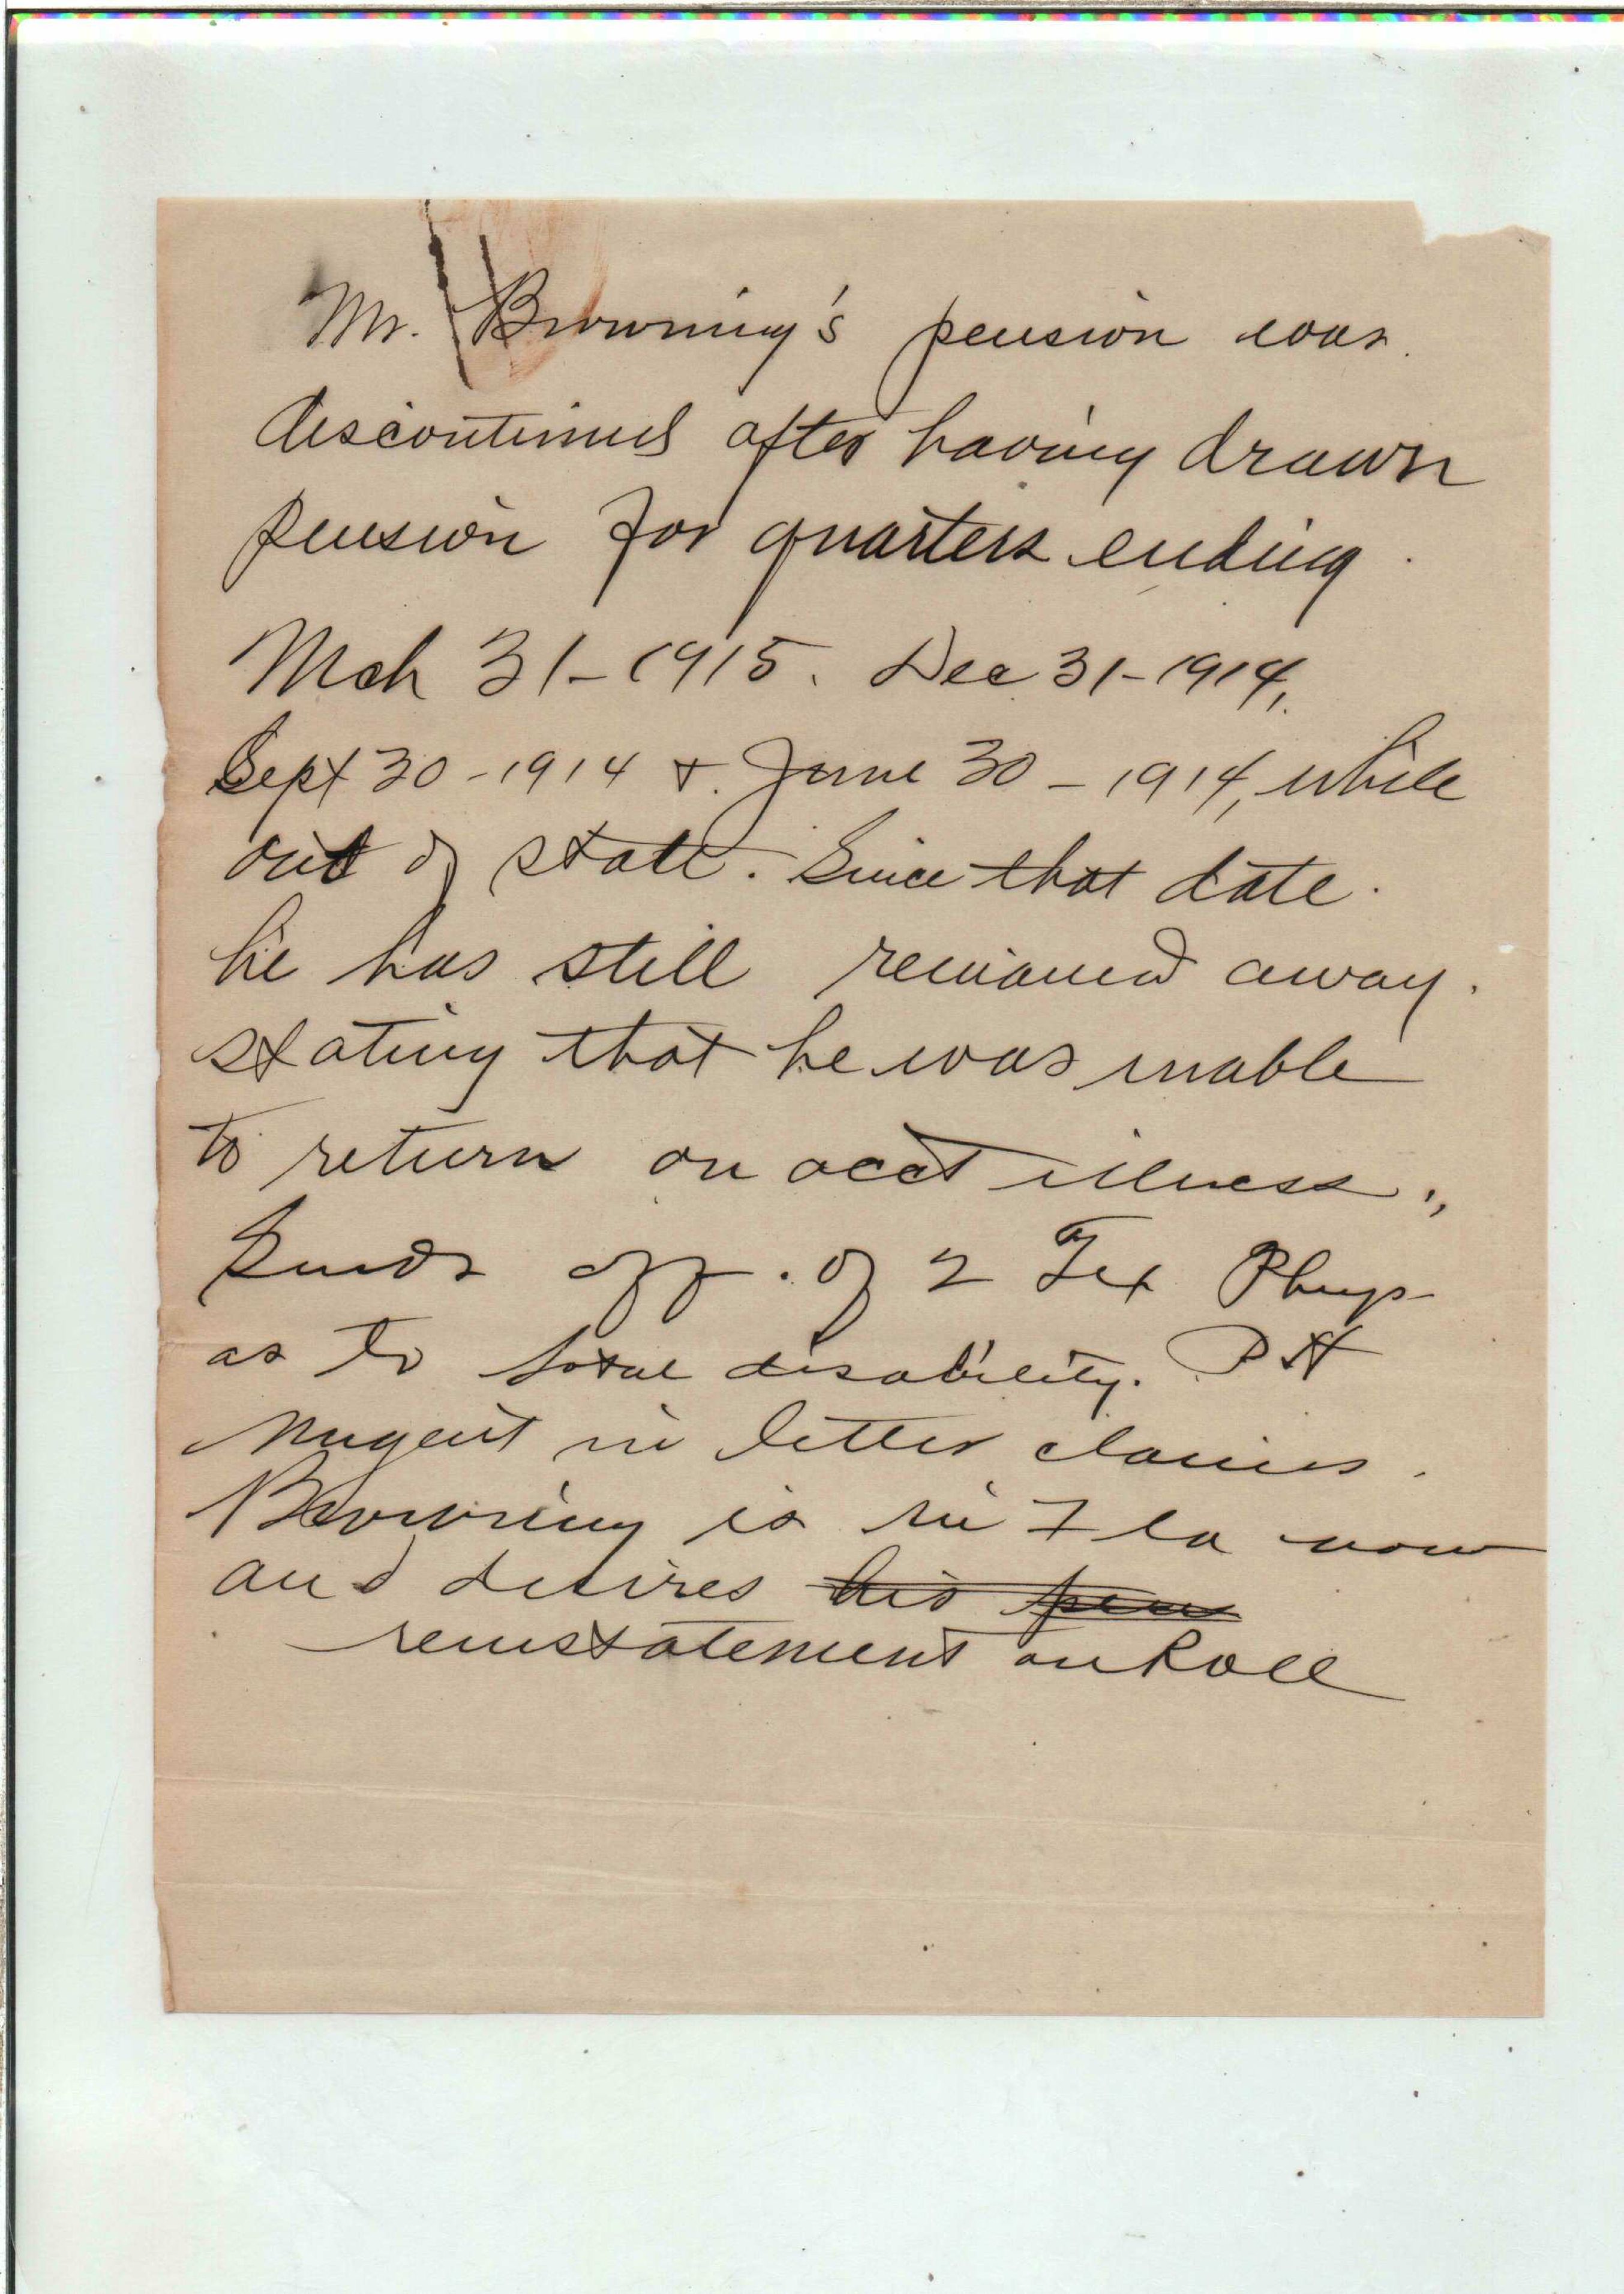 Mr. Browning's pension was
discontinued after having drawn
pension for quarters ending
Mch 31-1915. Dec 31-1914,
Sept 30-1914 & June 30-1914, while
out of state. Since that date
he has still remained away.
stating that he was unable
to return on acct illness,
Sends aff. of 2 Tex Phys
as to total disability. P H
Nugent in letter claims
Browning is in Fla now
and desires his pen
reinstatement on Roll